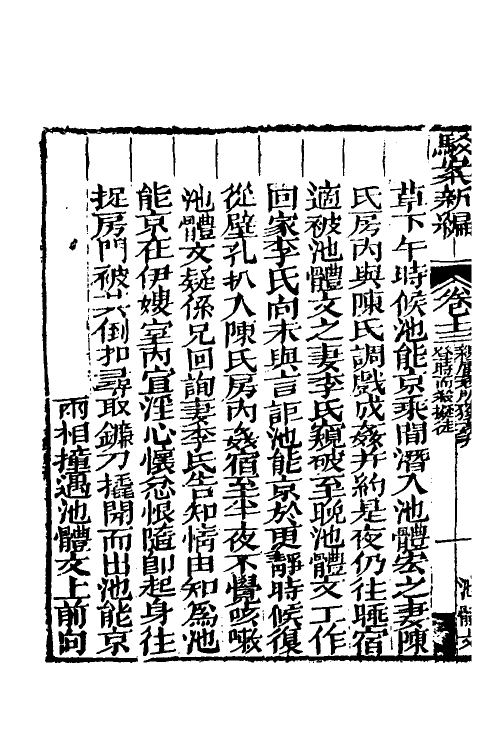 駁案新編
卷十二
池體文
草下午時候池能京乘間潛入池體宏之妻陳
氏房內與陳氏調戲成姦并約是夜仍往睡宿
適被池體文之妻李氏窺破至晚池體文工作
回家李氏尚未與言詎池能京於更靜時候復
從壁孔扒入陳氏房內姦宿至半夜不覺咳嗽
池體文疑係兄回詢妻李氏告知情由知為池
能京在伊嫂室內宣淫心懷忿恨隨即起身往
捉房門被其倒扣尋取鐮刀撬開而出池能京
兩相撞遇池體文上前向